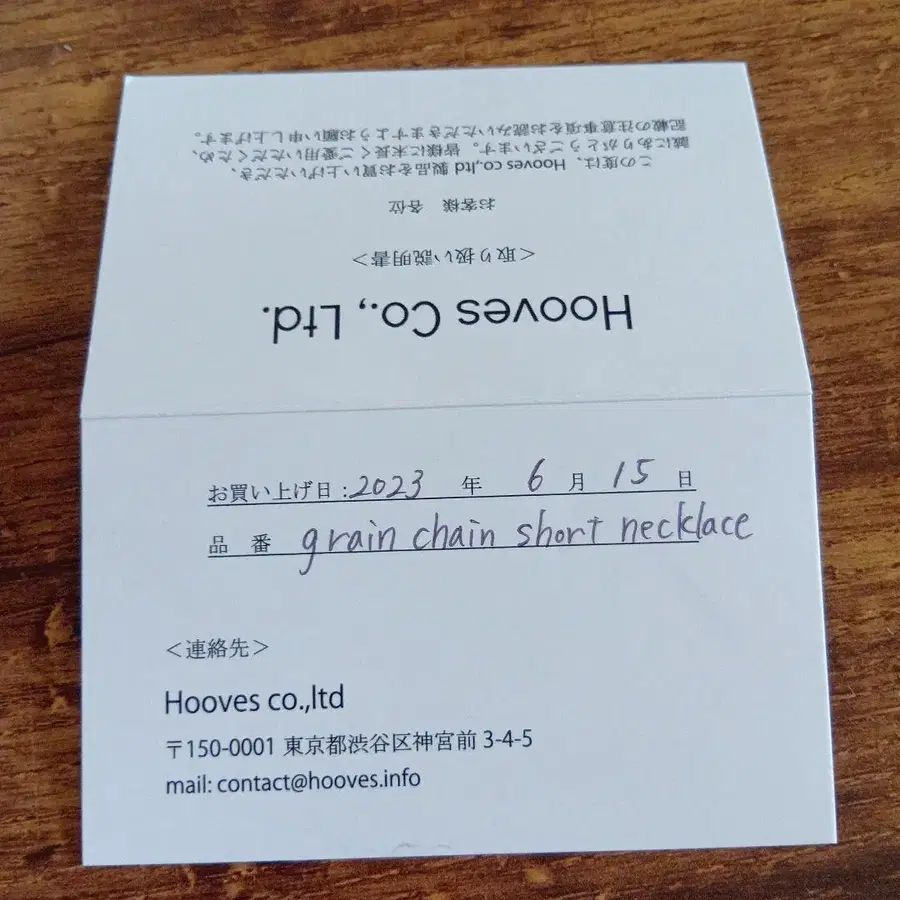 Hooves Co., Ltd.
＜取り扱い説明書＞
お客様　各位
この度は、Hooves co.,ltd 製品をお買い上げいただき、
誠にありがとうございます。皆様に末長くご愛用いただくため、
記載の注意事項をお読みいただきますようお願い申し上げます。
お買い上げ日：2023 年 6 月 15 日
品 番 grain chain short necklace
＜連絡先＞
Hooves co.,ltd
〒150-0001 東京都渋谷区神宮前 3-4-5
mail: contact@hooves.info